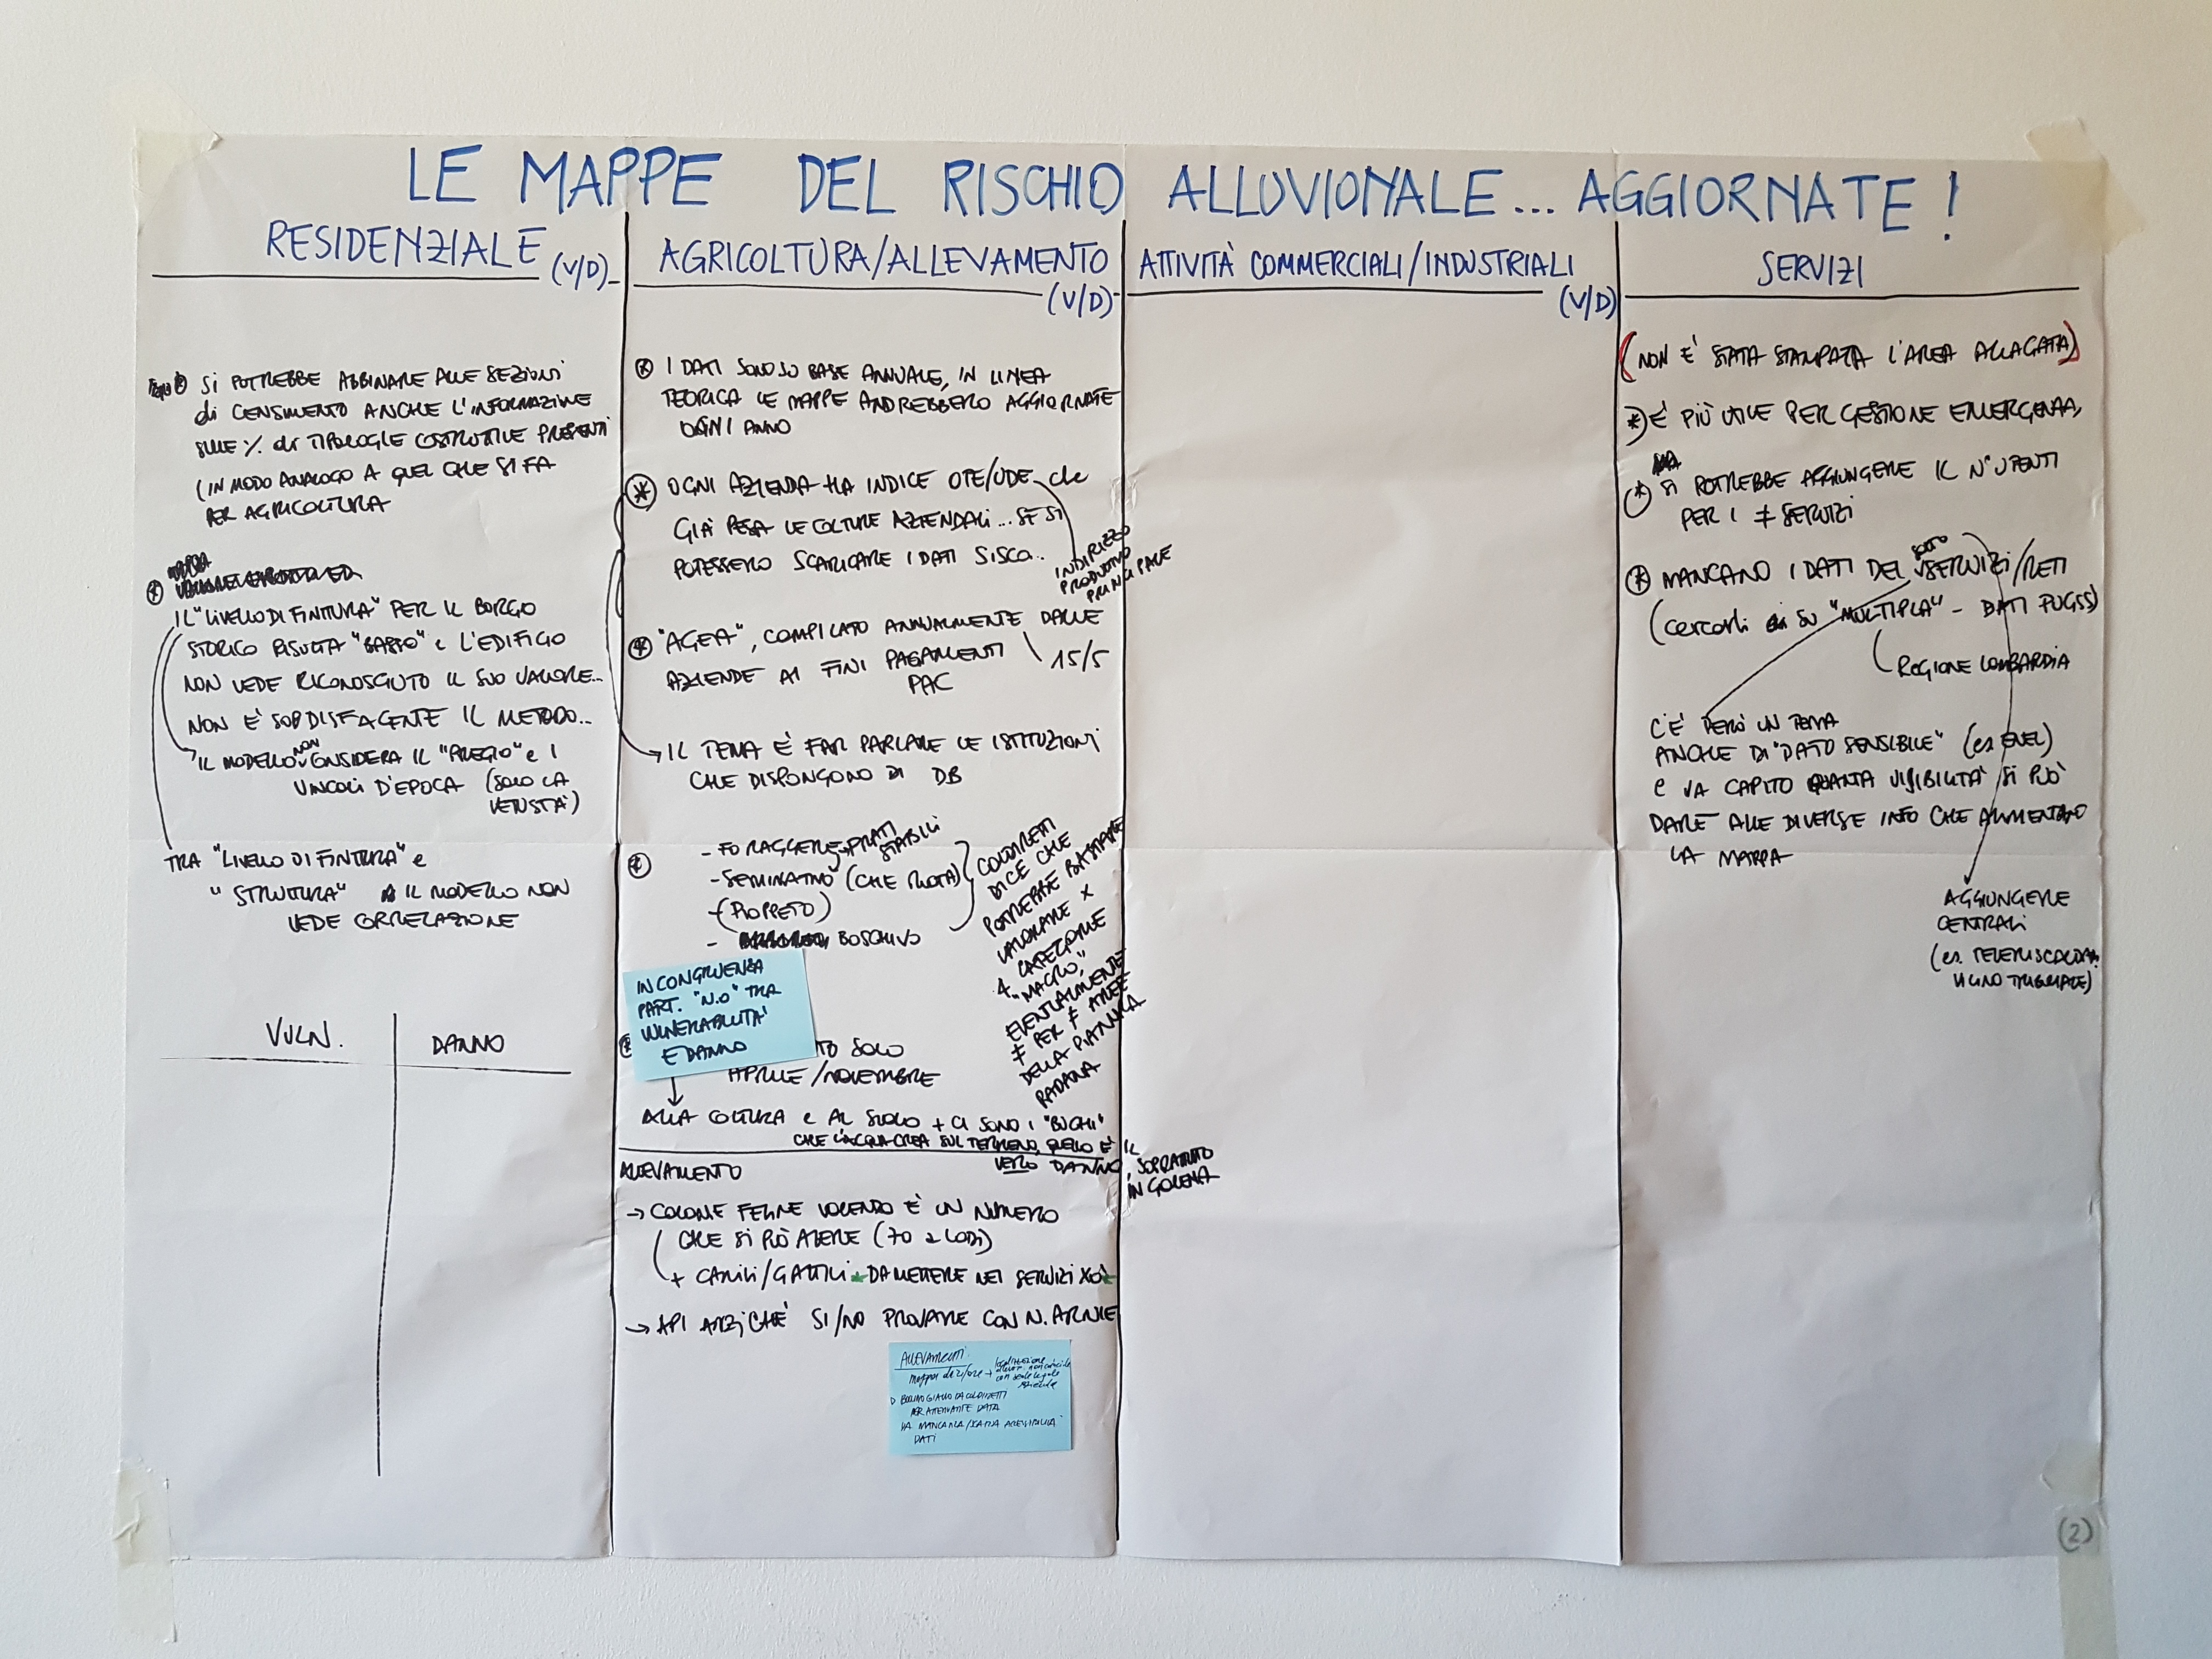 LE MAPPE DEL RISCHIO ALLUVIONALE... AGGIORNATE!
RESIDENZIALE (V/D)
SI POTREBBE ABBINARE ALLE SEZIONI
di CENSIMENTO ANCHE L'INFORMAZIONE
SULLE % di TIPOLOGIE COSTRUTTIVE PRESENTI
(IN MODO ANALOGO A QUEL CHE SI FA
PER AGRICOLTURA
IL "LIVELLO DI FINITURA" PER IL BORGO
STORICO RISULTA "BASSO" e L'EDIFICIO
NON VEDE RICONOSCIUTO IL SUO VALORE...
NON E' SODDISFACENTE IL METODO...
IL MODELLO NON CONSIDERA IL "PREGIO" e I
VINCOLI D'EPOCA (SOLO LA
VETUSTA')
TRA "LIVELLO DI FINITURA" e
"STRUTTURA" IL MODELLO NON
VEDE CORRELAZIONE
VULN. DANNO
AGRICOLTURA/ALLEVAMENTO
(V/D)
I DATI SONO SU BASE ANNUALE, IN LINEA
TEORICA LE MAPPE ANDREBBERO AGGIORNATE
OGNI ANNO
OGNI AZIENDA HA INDICE OTE/UDE che
GIA' PESA LE COLTURE AZIENDALI... SE SI
POTESSERO SCARICARE I DATI SISCO...
INDIRIZZO
PRODUTTIVO
PRINCIPALE
"AGEA", COMPILATO ANNUALMENTE DALLE
AZIENDE AI FINI PAGAMENTI
PAC
15/5
IL TEMA E' FAR PARLARE LE ISTITUZIONI
CHE DISPONGONO DI DB
- FORAGGERE → PRATI
STABILI
- SEMINATIVO (CHE RUOTA)
- (PIOPPETO)
- BOSCHIVO
COLDIRETTI
DICE CHE
POTREBBE BASTARE
VALORARE X
4 CATEGORIE
"MACRO",
EVENTUALMENTE
≠ PER ≠ AREE
DELLA PIANURA
PADANA
INCONGRUENZA
PART. "N.O" TRA
VULNERABILITA'
E DANNO
TO SOLO
APRILE/NOVEMBRE
ALLA COLTURA e AL SUOLO + CI SONO I "BUCHI"
CHE L'ACQUA CREA SUL TERRENO, QUELLO E' IL
VERO DANNO, SOPRATTUTTO
IN GOLENA
ALLEVAMENTO
→ COLONIE FELINE VOLENDO E' UN NUMERO
CHE SI PUÒ AVERE (70 a LODI)
+ CANILI/GATTILI DA METTERE NEI SERVIZI
→ API ANZICHE' SI/NO PROVARE CON N. ARNIE
ALLEVAMENTI.
mappa di
localizzazione
con sede legale
azienda
PER ATTENUANTE DATA
DA MANCANZA/SCARSA ACCESSIBILITÀ
DATI
ATTIVITÀ COMMERCIALI/INDUSTRIALI
(V/D)
SERVIZI
(NON E' STATA STAMPATA L'AREA ALLAGATA)
E' PIÙ UTILE PER GESTIONE EMERGENZA,
SI POTREBBE AGGIUNGERE IL N° UTENTI
PER I ≠ SERVIZI
MANCANO I DATI DEL SOTTOSERVIZI/RETI
(cercarli su "MULTIPLA" - DATI PUGSS)
REGIONE LOMBARDIA
C'E' PERÒ UN TEMA
ANCHE DI "DATO SENSIBILE" (es ENEL)
e VA CAPITO QUANTA VISIBILITA' SI PUÒ
DARE ALLE DIVERSE INFO CHE ALIMENTANO
LA MAPPA
AGGIUNGERE
CENTRALI
(es. TELERISCALDAM.
VICINO TRIBUNALE)
(2)